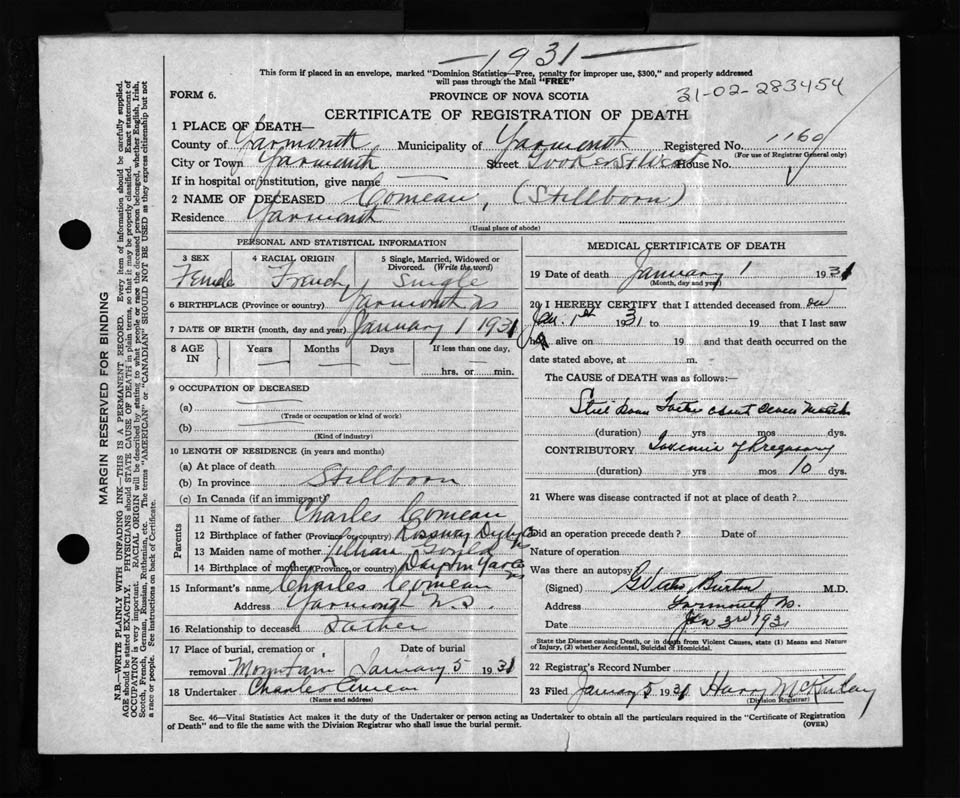 1931
This form if placed in an envelope, marked "Dominion Statistics—Free, penalty for improper use, $300," and properly addressed
will pass through the Mail "FREE"
31-02-283454
FORM 6. PROVINCE OF NOVA SCOTIA
CERTIFICATE OF REGISTRATION OF DEATH
1 PLACE OF DEATH—
County of Yarmouth Municipality of Yarmouth Registered No. 1160
(For use of Registrar General only)
City or Town Yarmouth Street House No.
If in hospital or institution, give name —
2 NAME OF DECEASED Comeau, (Stillborn)
Residence Yarmouth
(Usual place of abode)
PERSONAL AND STATISTICAL INFORMATION
3 SEX 4 RACIAL ORIGIN 5 Single, Married, Widowed or
Divorced. (Write the word)
Female French Single
6 BIRTHPLACE (Province or country) Yarmouth NS
7 DATE OF BIRTH (month, day and year) January 1 1931
8 AGE IN Years Months Days If less than one day,
hrs. or min.
9 OCCUPATION OF DECEASED
(a)
(Trade or occupation or kind of work)
(b)
(Kind of industry)
10 LENGTH OF RESIDENCE (in years and months)
(a) At place of death
(b) In province Stillborn
(c) In Canada (if an immigrant)
Parents
11 Name of father Charles Comeau
12 Birthplace of father (Province or country) Rossway Digby Co NS
13 Maiden name of mother Lillian Gould
14 Birthplace of mother (Province or country) NS
15 Informant's name Charles Comeau
Address Yarmouth N.S.
16 Relationship to deceased Father
17 Place of burial, cremation or Date of burial
removal Mountain January 5 1931
18 Undertaker Charles Comeau
(Name and address)
MEDICAL CERTIFICATE OF DEATH
19 Date of death January 1 1931
(Month, day and year)
20 I HEREBY CERTIFY that I attended deceased from on
Jan. 1st 1931 to 19 that I last saw
h alive on 19 and that death occurred on the
date stated above, at m.
The CAUSE of DEATH was as follows:
Still born about seven months
(duration) yrs mos dys.
CONTRIBUTORY Toxemia of Pregnancy
(duration) yrs mos 10 dys.
21 Where was disease contracted if not at place of death?
Did an operation precede death? Date of
Nature of operation
Was there an autopsy
(Signed) Burton M.D.
Address Yarmouth NS.
Date Jan 3rd 1931
State the Disease causing Death, or in death from Violent Causes, state (1) Means and Nature
of Injury, (2) whether Accidental, Suicidal or Homicidal.
22 Registrar's Record Number
23 Filed January 5 1931 Harry McKinley
(Division Registrar)
Sec. 46—Vital Statistics Act makes it the duty of the Undertaker or person acting as Undertaker to obtain all the particulars required in the "Certificate of Registration
of Death" and to file the same with the Division Registrar who shall issue the burial permit. (OVER)
MARGIN RESERVED FOR BINDING
N.B.—WRITE PLAINLY WITH UNFADING INK—THIS IS A PERMANENT RECORD. Every item of information should be carefully supplied.
AGE should be stated EXACTLY. PHYSICIANS should STATE CAUSE OF DEATH in plain terms, so that it may be properly classified. Exact statement of
OCCUPATION is very important. RACIAL ORIGIN will be described by stating to what people or race the deceased person belonged, whether English, Irish,
Scotch, French, German, Russian, Ruthenian, etc. The terms "AMERICAN" or "CANADIAN" SHOULD NOT BE USED as they express citizenship but not
a race or people. See instructions on back of Certificate.